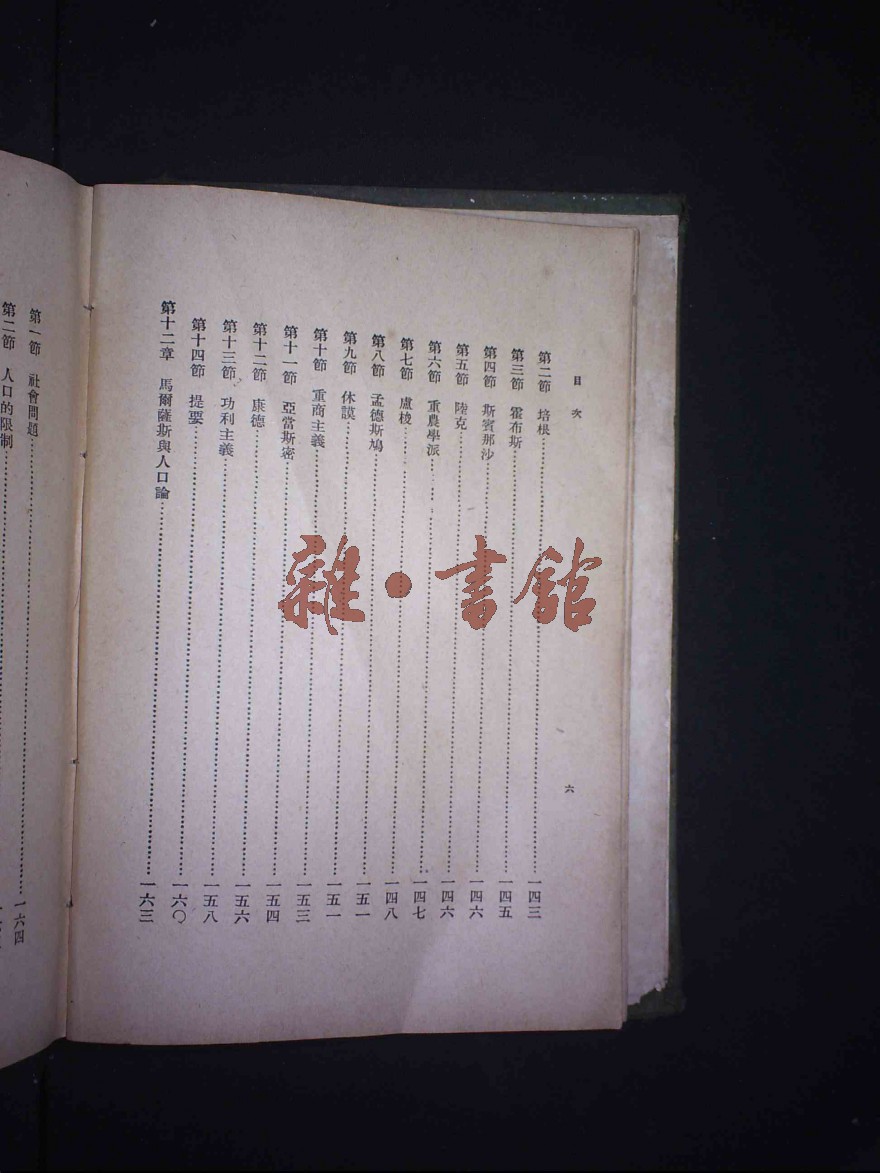 目次
六
第二節 培根……一四三
第三節 霍布斯……一四五
第四節 斯賓那沙……一四六
第五節 陸克……一四六
第六節 重農學派……一四七
第七節 盧梭……一四八
第八節 孟德斯鳩……一五一
第九節 休謨……一五一
第十節 重商主義……一五三
第十一節 亞當斯密……一五四
第十二節 康德……一五六
第十三節 功利主義……一五八
第十四節 提要……一六〇
第十二章 馬爾薩斯與人口論……一六三
第一節 社會問題……一六四
第二節 人口的限制……
雜·書館